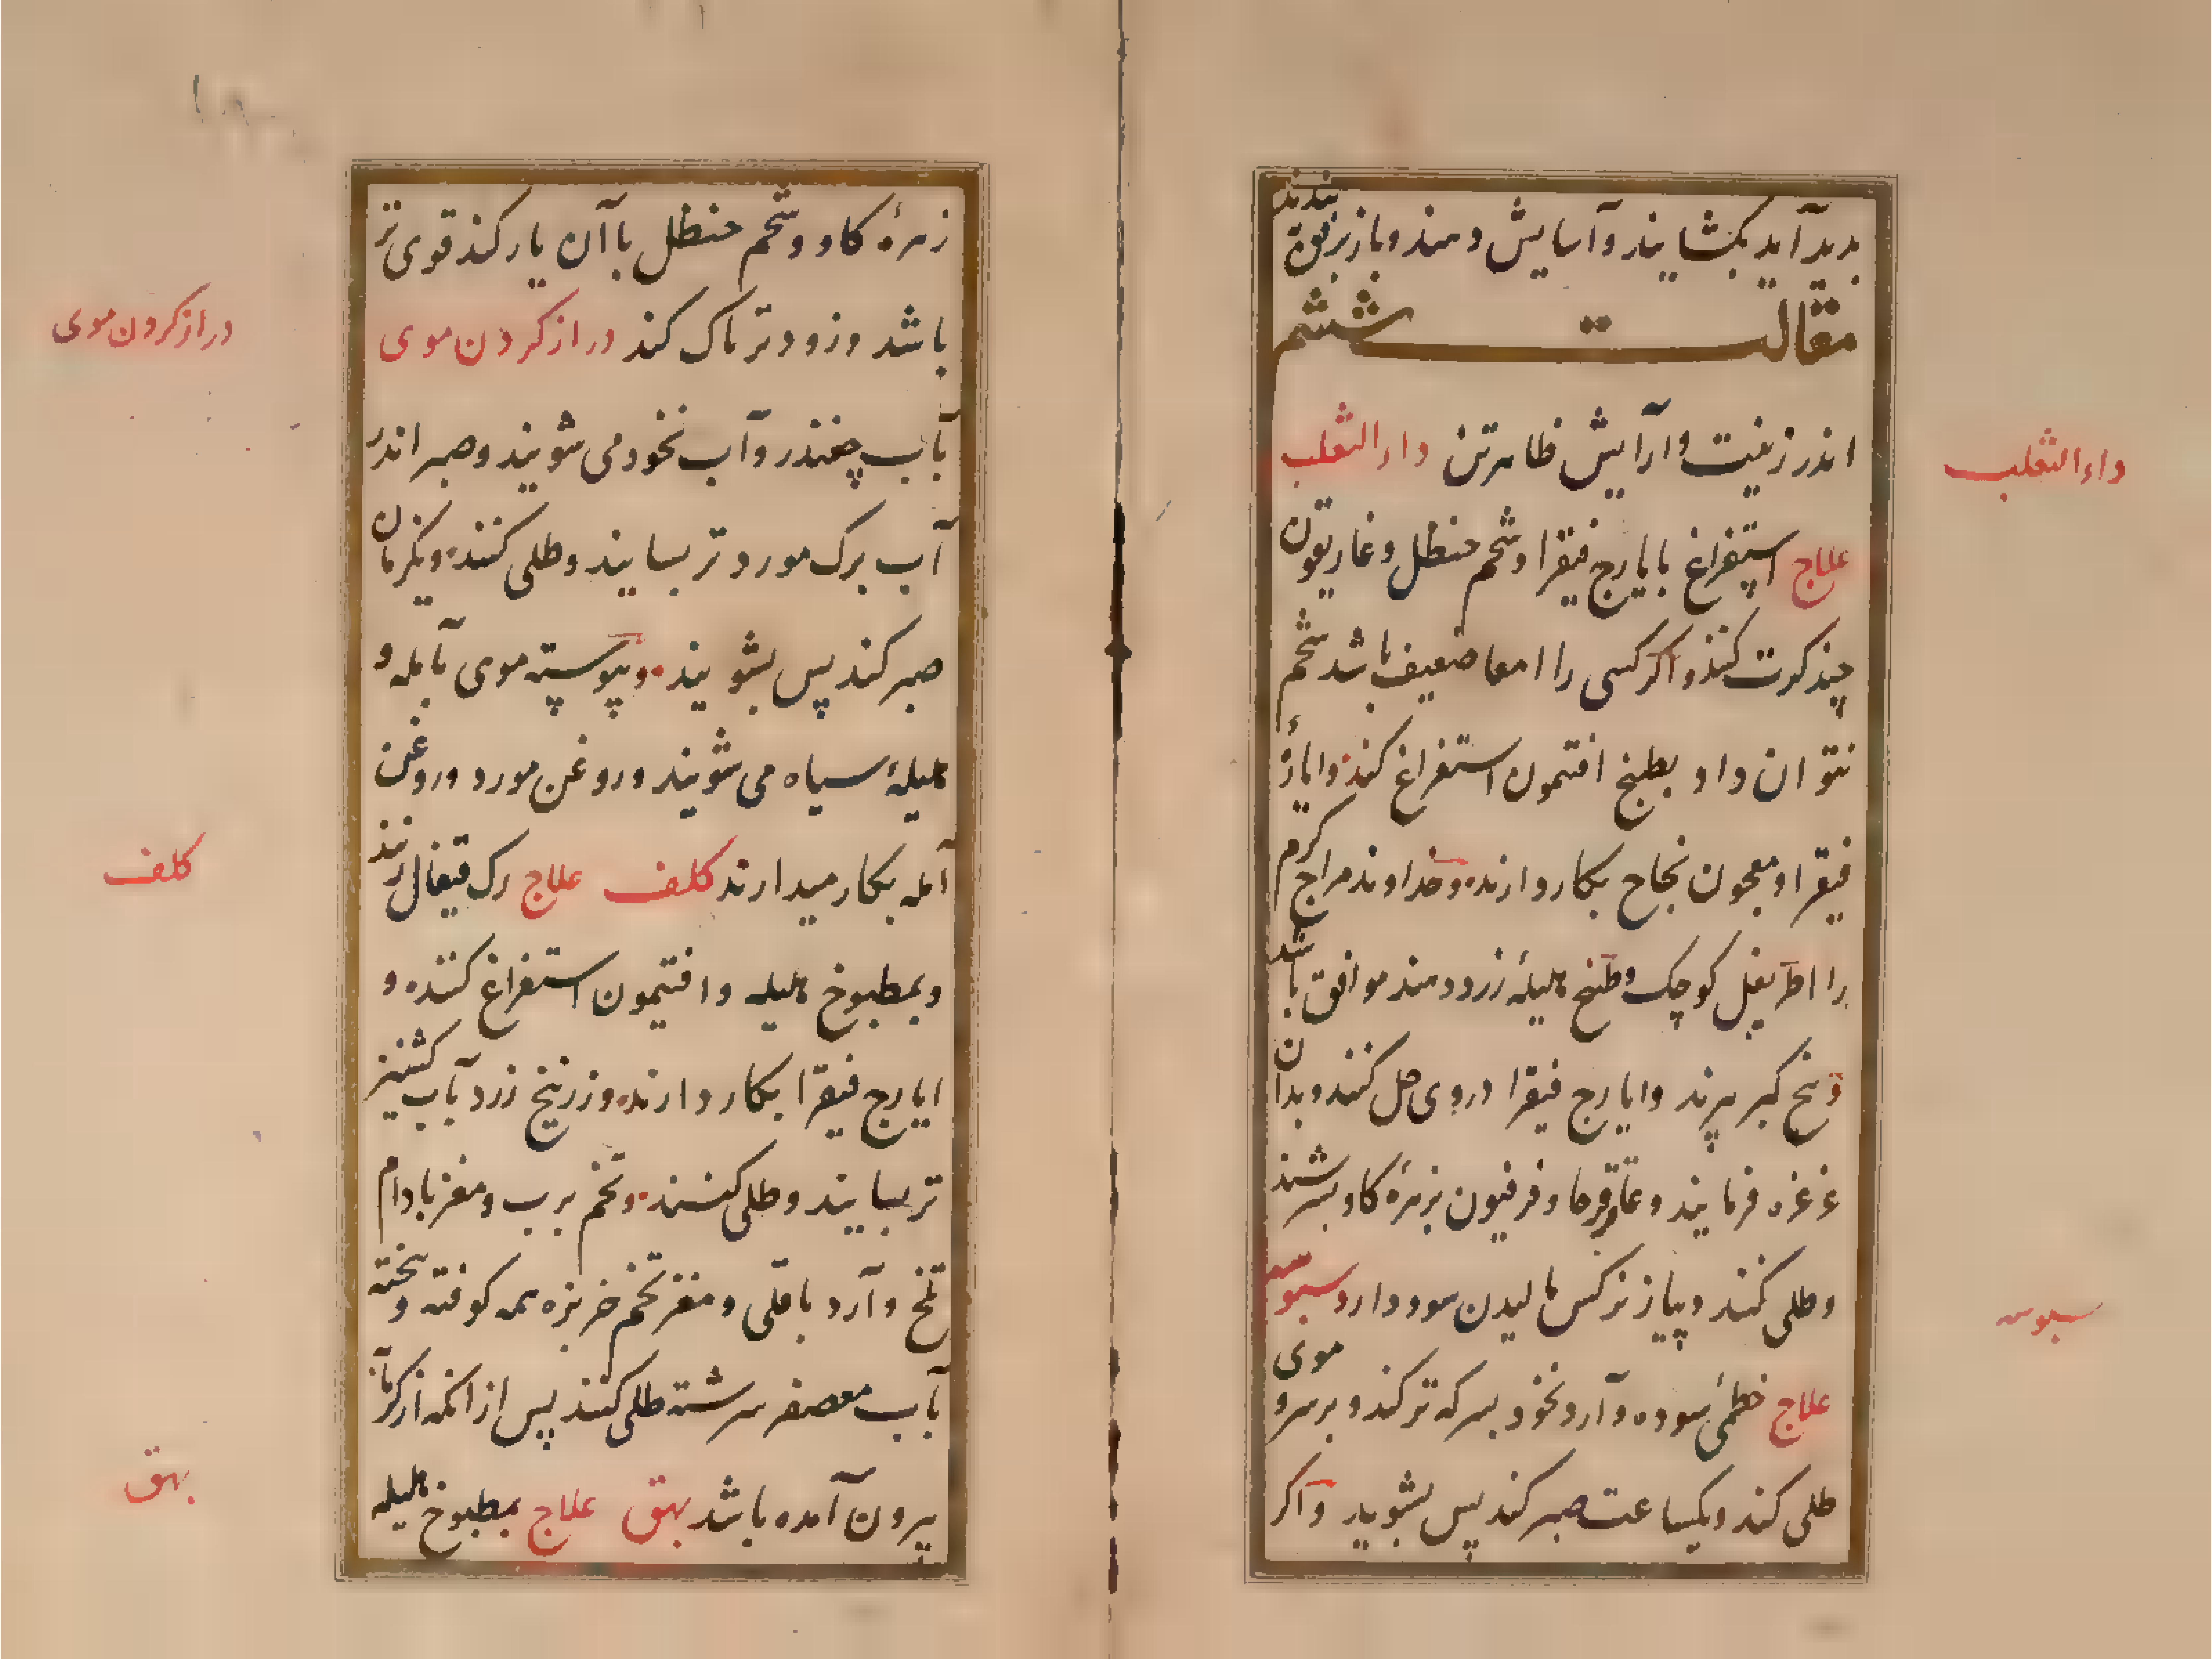 بدید آید بکشایند و آسایش دهند و باز برفق بندند
مقالت ششم
اندر زینت و آرایش ظاهر تن داء الثعلب
داء الثعلب
علاج استفراغ بایارج فیقرا و شحم حنظل و غاریقون
چند کرت کنند و اکر کسی را امعا ضعیف باشد شحم
نتوان داد بطبیخ افتیمون استفراغ کنند و ایارج
فیقرا و معجون نجاح بکار دارند و خداوند مزاج کرم
را اطریفل کوچک و طبیخ هلیلهٔ زرد دهند موافق باشد
و بیخ کبر بپزند و ایارج فیقرا در وی حل کنند و بدان
غرغره فرمایند و عاقرقرحا و فرفیون بزهرهٔ کاو بسرشند
و طلی کنند و پیاز نرکس مالیدن سود دارد سبوسه
سبوسه
علاج خطمی سوده و آرد نخود بسرکه تر کند و بر سر و موی
طلی کند و یکساعت صبر کند پس بشوید و اکر
زهرهٔ کاو و شحم حنظل با آن یار کند قوی تر
باشد و زودتر پاک کند دراز کردن موی
دراز کردن موی
بآب چغندر و آب نخود می شویند و صبر اندر
آب برک مورد تر بسایند و طلی کنند و یکزمان
صبر کند پس بشویند و پیوسته موی بآمله و
هلیلهٔ سیاه می شویند و روغن مورد و روغن
آمله بکار میدارند کلف علاج رک قیفال زنند
کلف
و بمطبوخ هلیله و افتیمون استفراغ کنند و
ایارج فیقرا بکار دارند و زرنیخ زرد بآب کشنیز
تر بسایند و طلی کنند و تخم ترب و مغز بادام
تلخ و آرد باقلی و مغز تخم خربزه همه کوفته و بیخته
بآب معصفر سرشته طلی کنند پس از آنکه از کرمابه
بیرون آمده باشد بهق علاج بمطبوخ هلیله
بهق